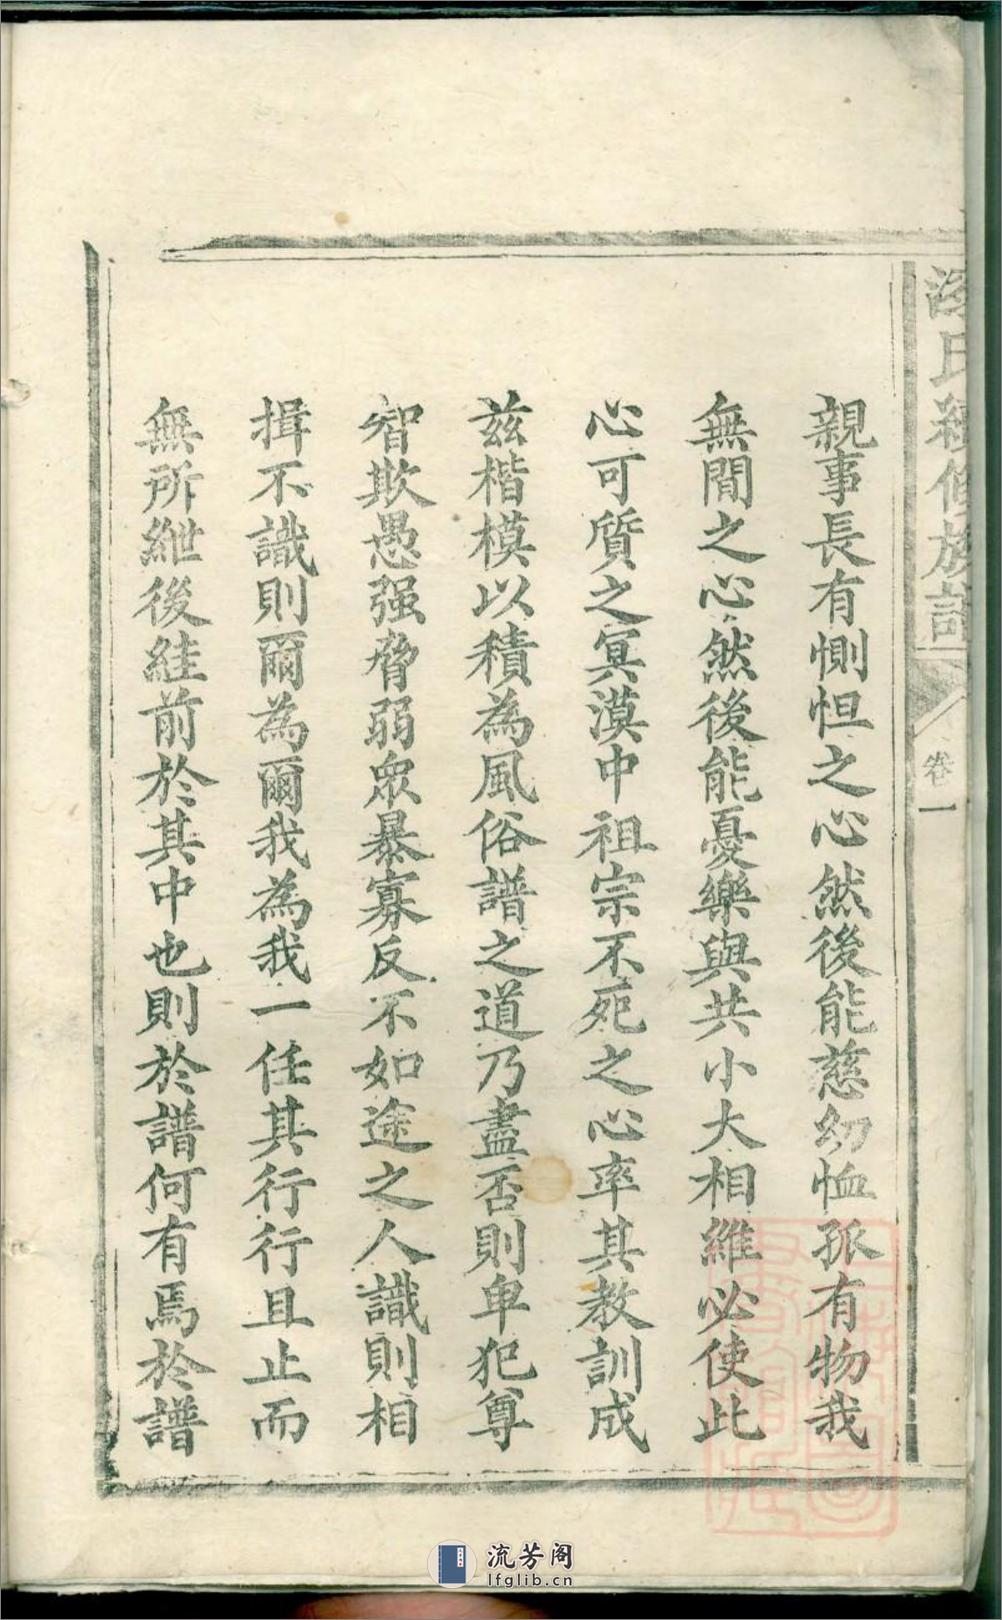 氏續修族譜
卷一
親事長有惻怛之心然後能慈幼恤孤有物我
無間之心然後能憂樂與共小大相維必使此
心可質之冥漠中祖宗不死之心率其教訓成
茲楷模以積為風俗譜之道乃盡否則卑犯尊
智欺愚强脅弱眾暴寡反不如途之人識則相
揖不識則爾為爾我為我一任其行行且止而
無所紲後絓前於其中也則於譜何有焉於譜
流芳阁
lfglib.cn